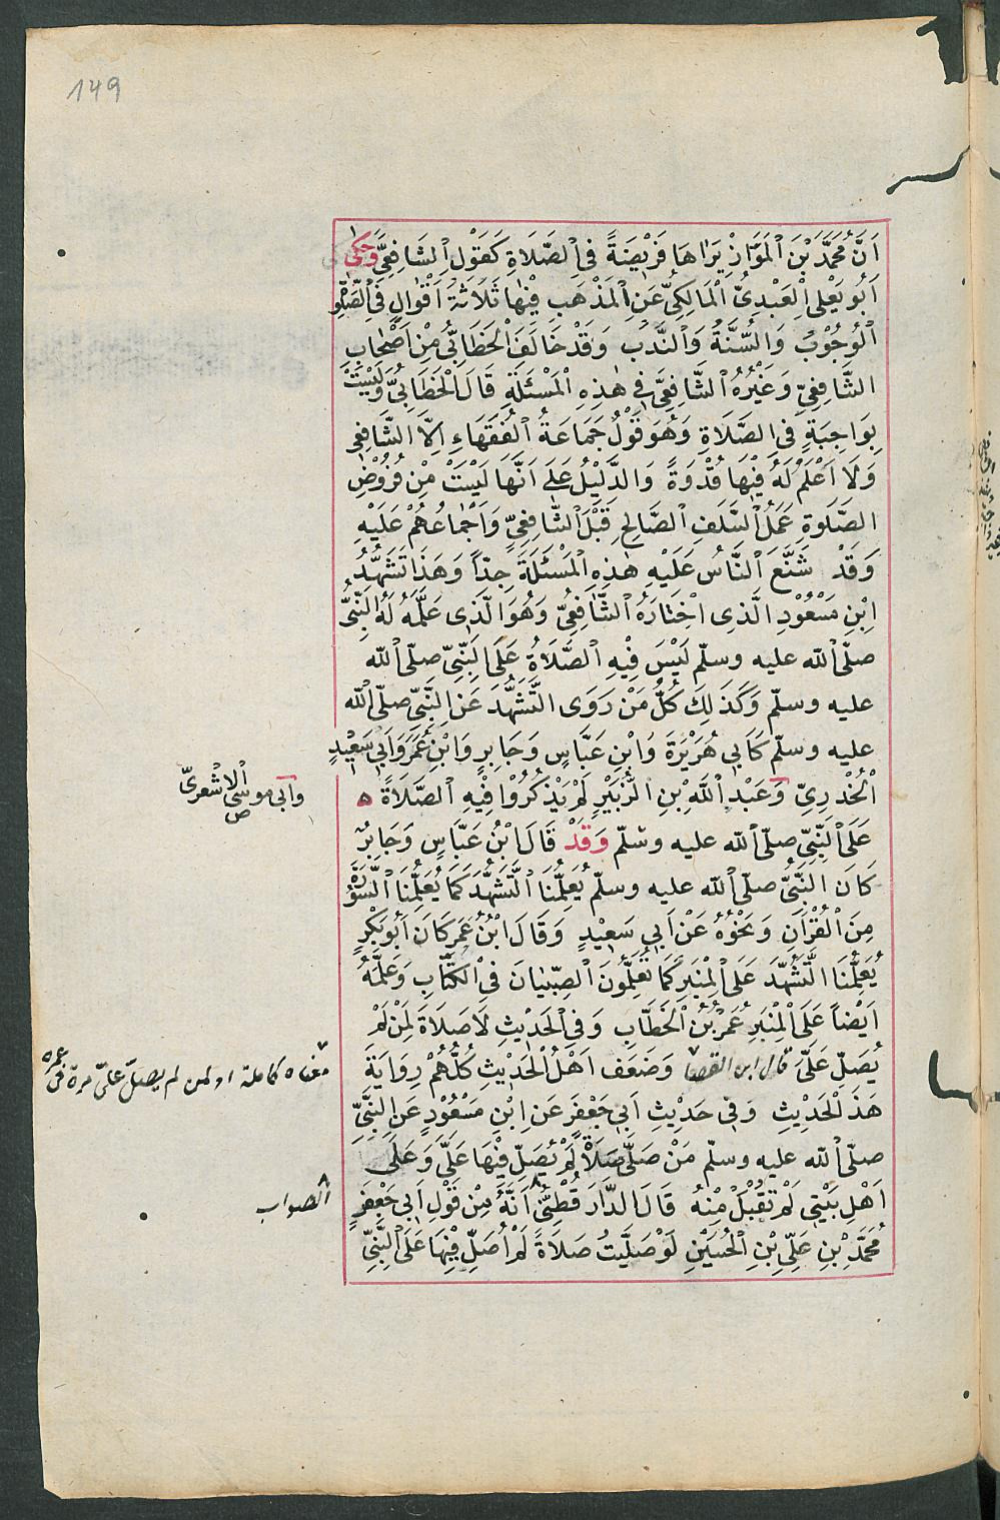 149
اَنَّ مُحَمَّدَ بْنَ الْمَوَّازِ يَرَاهَا فَرِيْضَةً فِى الصَّلَاةِ كَقَوْلِ الشَّافِعِيِّ وَحَكٰى
اَبُو يَعْلَى الْعَبْدِىُّ الْمَالِكِىُّ عَنِ الْمَذْهَبِ فِيْهَا ثَلَاثَةَ اَقْوَالٍ فِى الصَّلٰوةِ
الْوُجُوْبُ وَالسُّنَّةُ وَالنَّدْبُ وَقَدْ خَالَفَ الْخَطَّابِىُّ مِنْ اَصْحَابِ
الشَّافِعِيِّ وَغَيْرُهُ الشَّافِعِيَّ فِى هٰذِهِ الْمَسْئَلَةِ قَالَ الْخَطَّابِىُّ وَلَيْسَتْ
بِوَاجِبَةٍ فِى الصَّلَاةِ وَهُوَ قَوْلُ جَمَاعَةُ الْفُقَهَاءِ اِلَّا الشَّافِعِى
وَلَا اَعْلَمُ لَهُ فِيْهَا قُدْوَةً وَالدَّلِيْلُ عَلَى اَنَّهَا لَيْسَتْ مِنْ فُرُوْضِ
الصَّلٰوةِ عَمَلُ السَّلَفِ الصَّالِحِ قَبْلَ الشَّافِعِيِّ وَاِجْمَاعُهُمْ عَلَيْهِ
وَقَدْ شَنَّعَ النَّاسُ عَلَيْهِ هٰذِهِ الْمَسْئَلَةَ جِدًّا وَهَذَا تَشَهُّدُ
ابْنِ مَسْعُوْدٍ الَّذِى اخْتَارَهُ الشَّافِعِيُّ وَهُوَ الَّذِى عَلَّمَهُ لَهُ النَّبِىُّ
صلّى الله عليه وسلّم لَيْسَ فِيْهِ الصَّلَاةُ عَلَى النَّبِىِّ صلّى الله
عليه وسلّم وَكَذَلِكَ كُلُّ مَنْ رَوَى التَّشَهُّدَ عَنِ النَّبِىِّ صلّى الله
عليه وسلّم كَاَبِى هُرَيْرَةَ وَابْنِ عَبَّاسٍ وَجَابِرٍ وَابْنِ عُمَرَ وَاَبِى سَعِيْدٍ
الْخُدْرِىِّ وَعَبْدِ اللّٰهِ بْنِ الزُّبَيْرِ لَمْ يَذْكُرُوْا فِيْهِ الصَّلَاةَ ه
وابى موسى الاشعرىّ
ص
عَلَى النَّبِىِّ صلّى الله عليه وسلّم وَقَدْ قَالَ ابْنُ عَبَّاسٍ وَجَابِرٌ
كَانَ النَّبِىُّ صلّى الله عليه وسلّم يُعَلِّمُنَا التَّشَهُّدَ كَمَا يُعَلِّمُنَا السُّوْرَةَ
مِنَ الْقُرْاٰنِ وَنَحْوُهُ عَنْ اَبِى سَعِيْدٍ وَقَالَ ابْنُ عُمَرَ كَانَ اَبُو بَكْرٍ
يُعَلِّمُنَا التَّشَهُّدَ عَلَى الْمِنْبَرِ كَمَا تُعَلِّمُوْنَ الصِّبْيَانَ فِى الْكُتَّابِ وَعَلَّمَهُ
اَيْضًا عَلَى الْمِنْبَرِ عُمَرُ بْنُ الْخَطَّابِ وَفِى الْحَدِيْثِ لَا صَلَاةَ لِمَنْ لَمْ
يُصَلِّ عَلَىَّ قال ابن القصار وَضَعَّفَ اَهْلُ الْحَدِيْثِ كُلُّهُمْ رِوَايَةَ
معناه كاملة او لمن لم يصلّ علىّ مرة فى عمره
هَذَ الْحَدِيْثِ وَفِى حَدِيْثِ اَبِى جَعْفَرَ عَنِ ابْنِ مَسْعُوْدٍ عَنِ النَّبِىِّ
صلّى الله عليه وسلّم مَنْ صَلَّى صَلَاةً لَمْ يُصَلِّ فِيْهَا عَلَىَّ وَعَلَى
اَهْلِ بَيْتِى لَمْ تُقْبَلْ مِنْهُ قَالَ الدَّارَ قُطْنِىُّ اَنَّهُ مِنْ قَوْلِ اَبِى جَعْفَرٍ
الصواب
مُحَمَّدِ بْنِ عَلِىِّ بْنِ الْحُسَيْنِ لَوْ صَلَّيْتُ صَلَاةً لَمْ اُصَلِّ فِيْهَا عَلَى النَّبِىِّ